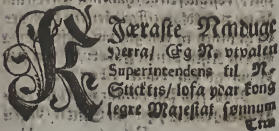 KIæraste Naadugt
Herra/ Eg N. vtvalen
Superintendens til N.
Sticktis/ lofa ydar Kong
legre Majestat, sonnum
Trw